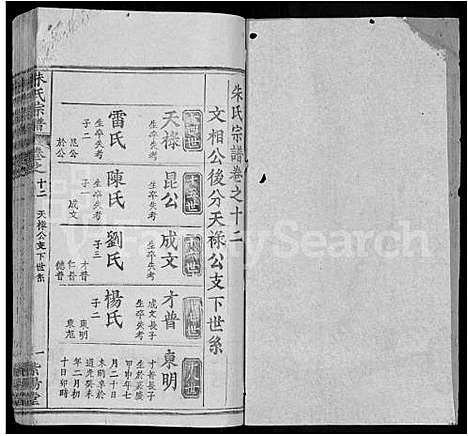 朱氏宗譜卷之十二
文相公後分天祿公支下世系
天祿
生卒失考
雷氏
生卒失考
子二
昆公
於公
昆公
生卒失考
陳氏
生卒失考
子一
成文
成文
生卒失考
劉氏
生卒失考
子三
才普
仁普
德普
才普
成文長子
生卒失考
楊氏
生卒失考
子二
東明
東旭
東明
才普長子
生於
甲申年七
月二十日
未時卒於
道光癸未
年二月初
十日卯時
朱氏宗譜
卷之十二
天祿公支下世系
一
紫陽堂
FamilySearch